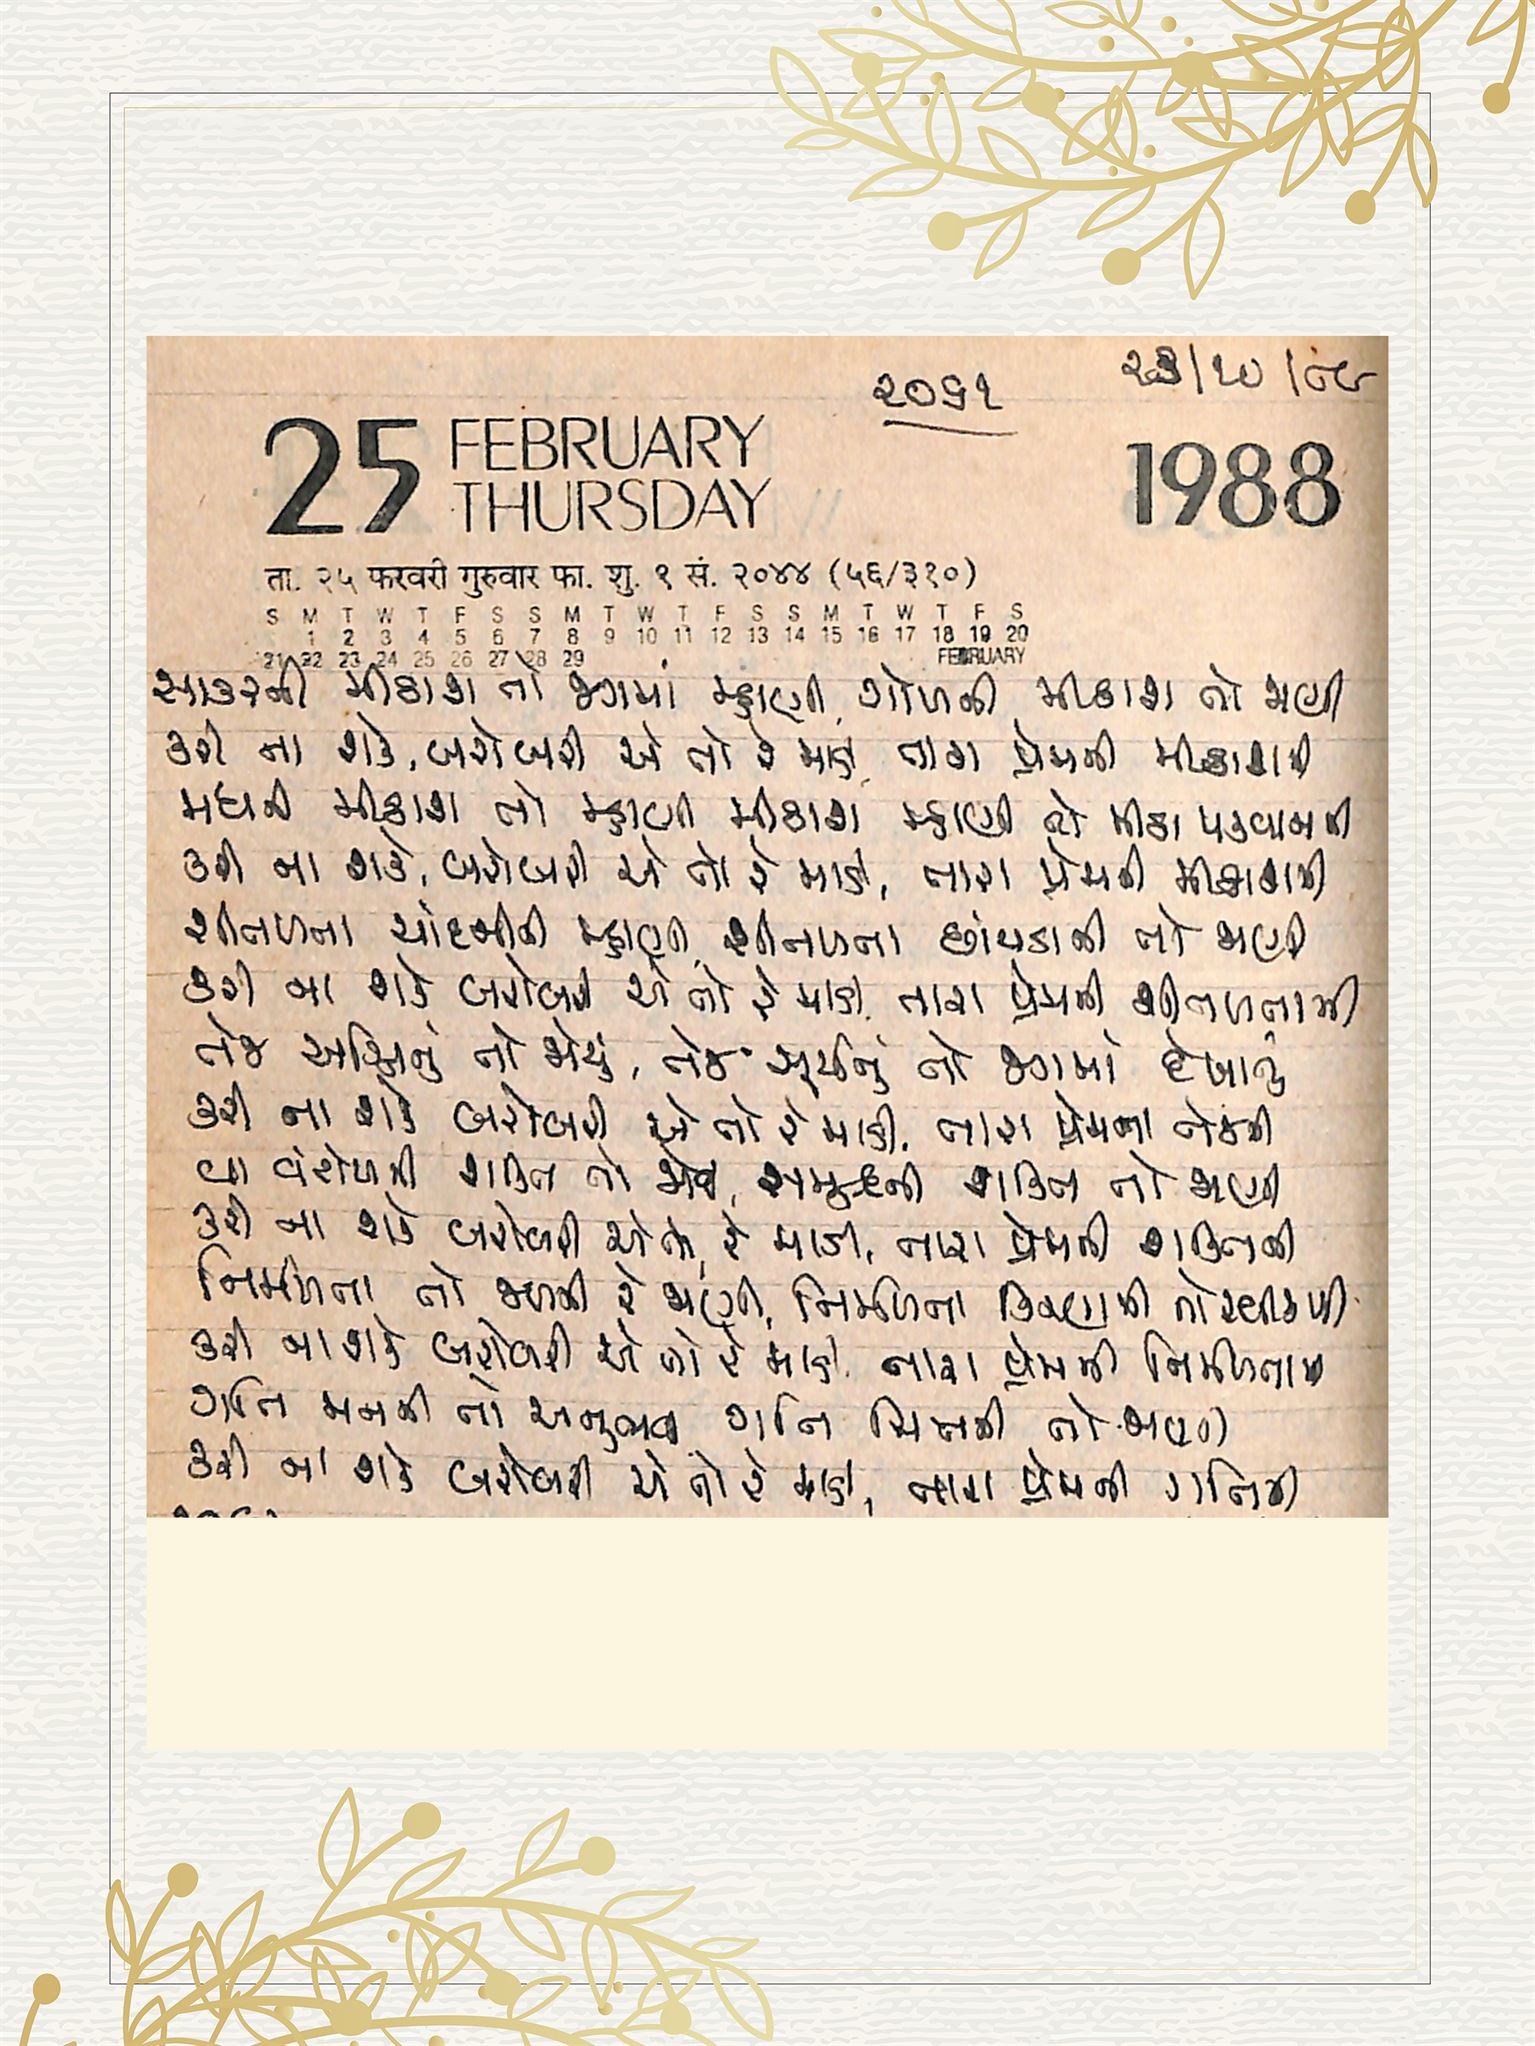 ૨૦૬૧ ૨૩/૧૦/૮૯
25 FEBRUARY
THURSDAY
1988
ता. २५ फरवरी गुरुवार फा. शु. ९ सं. २०४४ (५६/३१०)
S M T W T F S S M T W T F S S M T W T F S
1 2 3 4 5 6 7 8 9 10 11 12 13 14 15 16 17 18 19 20
21 22 23 24 25 26 27 28 29 FEBRUARY
સાકરની મીઠાશ તો જગમાં મ્હાણી, ગોળની મીઠાશ તો જાણી
કરી ના શકે, બરોબરી એ તો રે માડી, તારા પ્રેમની મીઠાશની
મધની મીઠાશ તો મ્હાણી મીઠાશ મ્હાણી તો મીઠા પકવાનની
કરી ના શકે, બરોબરી એ તો રે માડી, તારા પ્રેમની મીઠાશની
શીતળતા ચાંદનીની મ્હાણી, શીતળતા છાંયડાની તો જાણી
કરી ના શકે બરોબરી એ તો રે માડી, તારા પ્રેમની શીતળતાની
તેજ અગ્નિનું તો જોયું, તેજ સૂર્યનું તો જગમાં દેખાયું
કરી ના શકે બરોબરી એ તો રે માડી, તારા પ્રેમના તેજની
વા વંટોળની શક્તિ તો જોઈ, સમુદ્રની શક્તિ તો જાણી
કરી ના શકે બરોબરી એ તો રે માડી, તારા પ્રેમની શક્તિની
નિર્મળતા તો જળની રે જાણી, નિર્મળતા કિરણની તો
કરી ના શકે બરોબરી એ તો રે માડી, તારા પ્રેમની નિર્મળતાની
ગતિ મનની તો અનુભવી ગતિ ચિત્તની તો જાણી
કરી ના શકે બરોબરી એ તો રે માડી, તારા પ્રેમની ગતિની